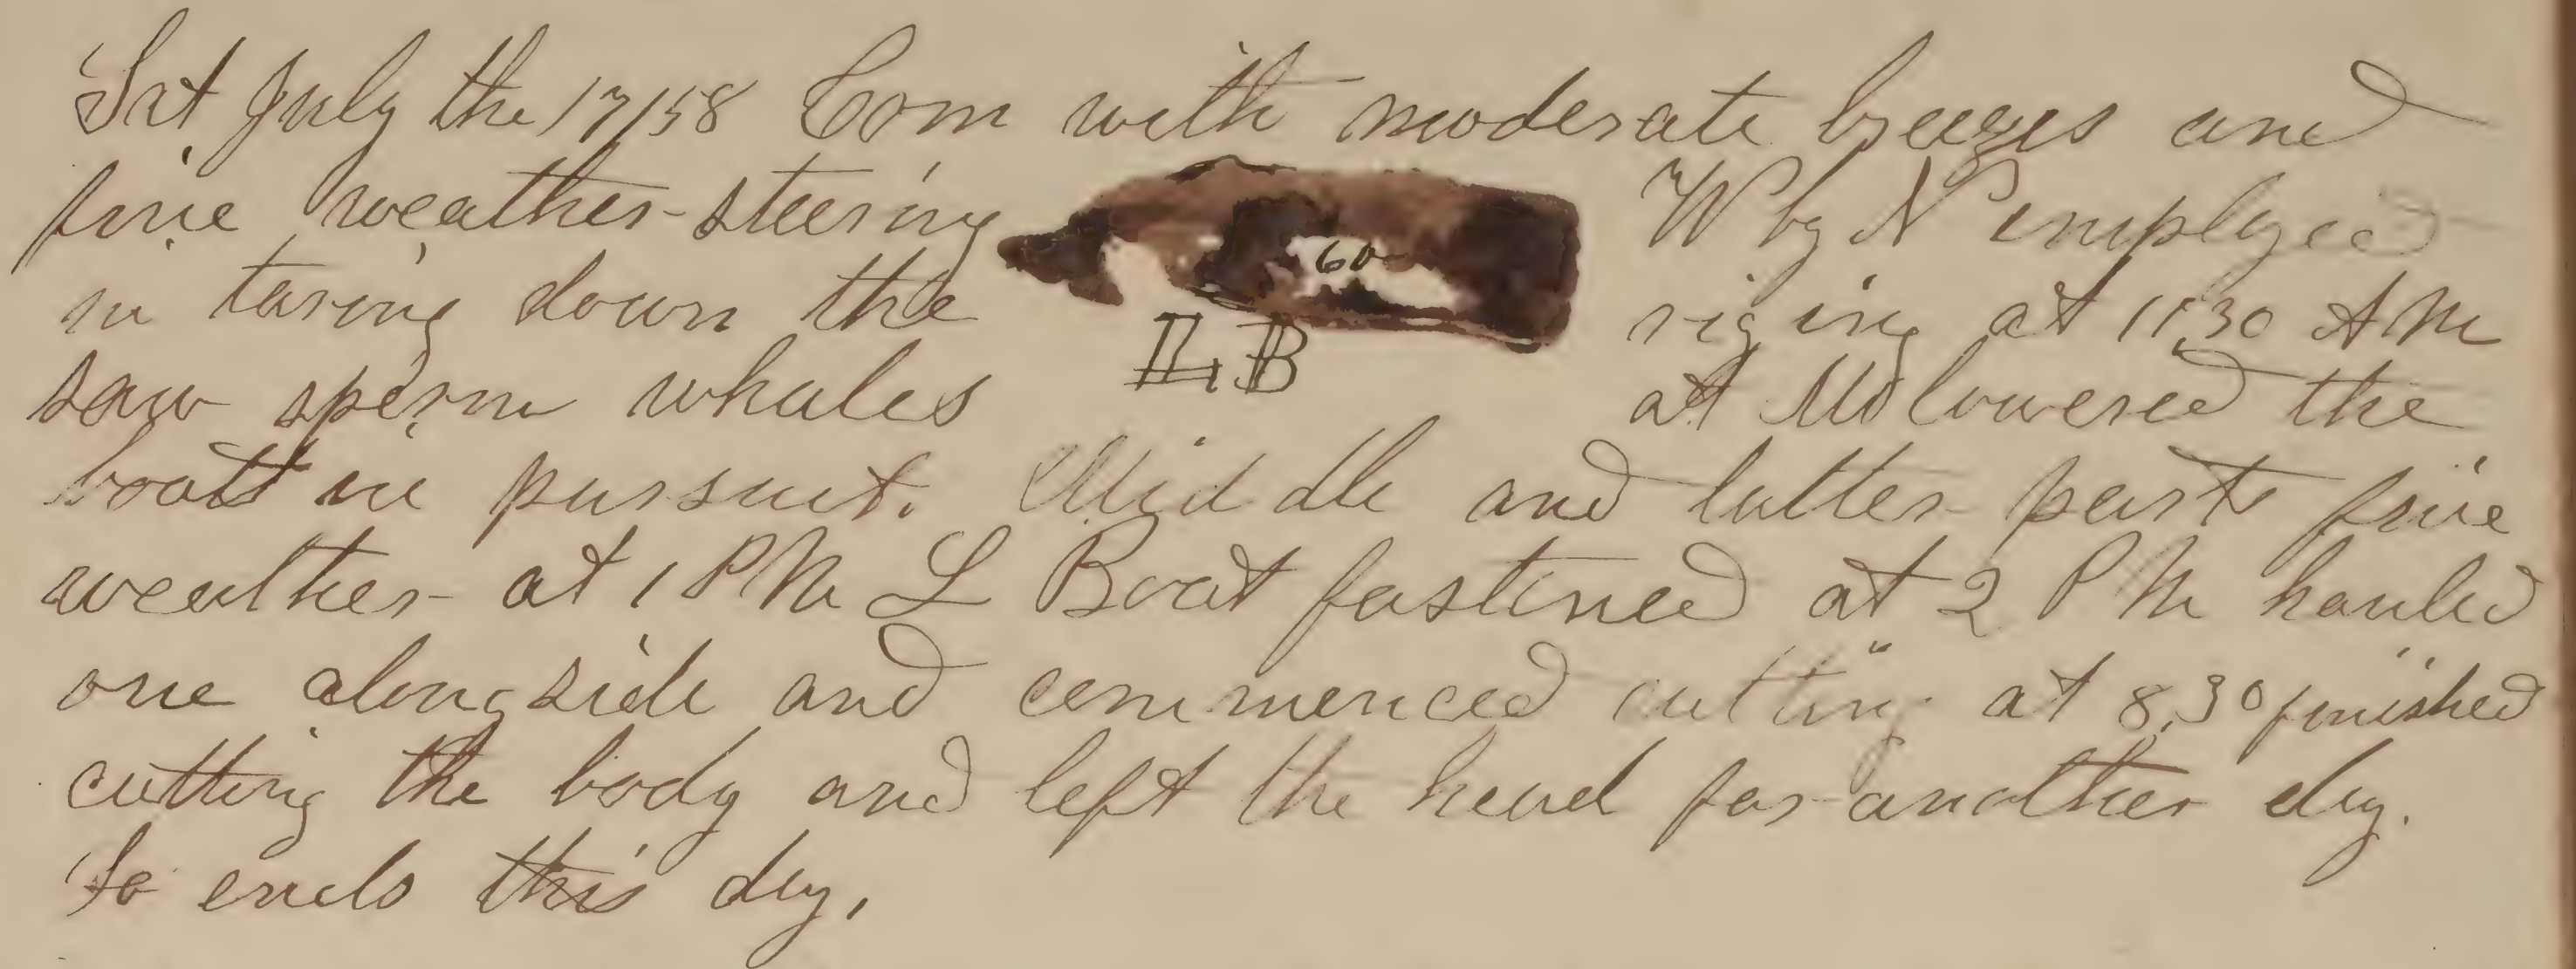 Sat July the 17/58 Com with moderate breezes and
fine weather steering W by N employed
in taring down the riging at 11,30 AM
saw sperm whales at M lowered the
boats in pursuit. Middle and latter parts fine
weather at 1 PM L Boat fastened at 2 PM hauled
one alongside and commenced cutting at 8,30 finished
cutting the body and left the head for another day.
So ends this day,
60
LB